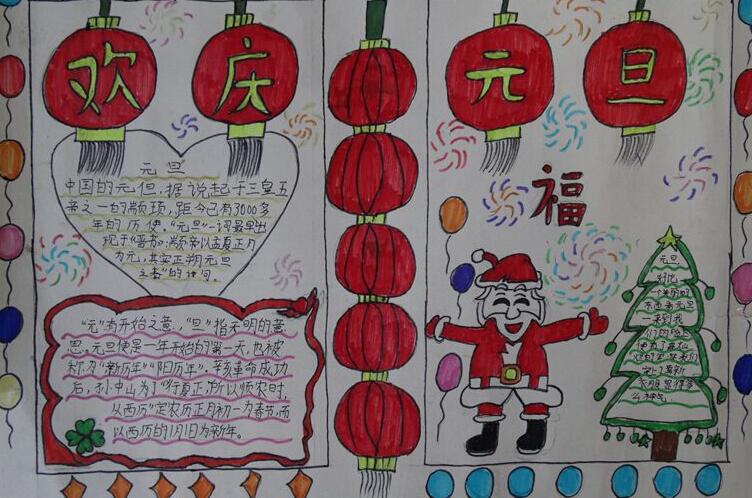 欢庆元旦
元旦
中国的元但,据说起于三皇五
帝之一的颛顼,距今已有3000多
年的历使。"元旦"一词最早出
现于《晋书》:颛帝以孟夏正月
为元,其实正朔元旦
之春"的诗句。
"元"有开始之意,"旦"指天明的意
思。元旦便是一年开始的第一天,也被
称为"新历年""阳历年"。辛亥革命成功
后,孙中山为了"行夏正,所以顺农时,
从西历"定农历正月初一为春节,而
以西历的1月1日为新年。
福
元旦
一个美丽的
一来到我
们的